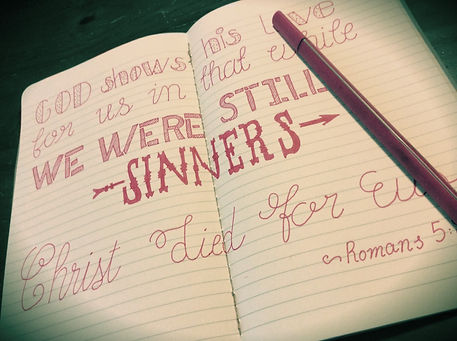 GOD shows his Love
for us in that while
WE WERE STILL
SINNERS
Christ died for
Romans 5: